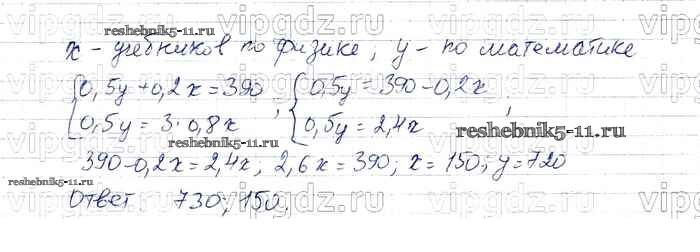 vipgdz.ru vipgdz.ru vipgdz.ru
reshebnik5-11.ru
x - учебников по физике, y - по математике
{0,5y + 0,2x = 390 ; {0,5y = 390 - 0,2x ,
{0,5y = 3·0,8x {0,5y = 2,4x
reshebnik5-11.ru
reshebnik5-11.ru
390 - 0,2x = 2,4x; 2,6x = 390; x = 150; y = 720
reshebnik5-11.ru
Ответ 730; 150.
vipgdz.ru vipgdz.ru vipgdz.ru